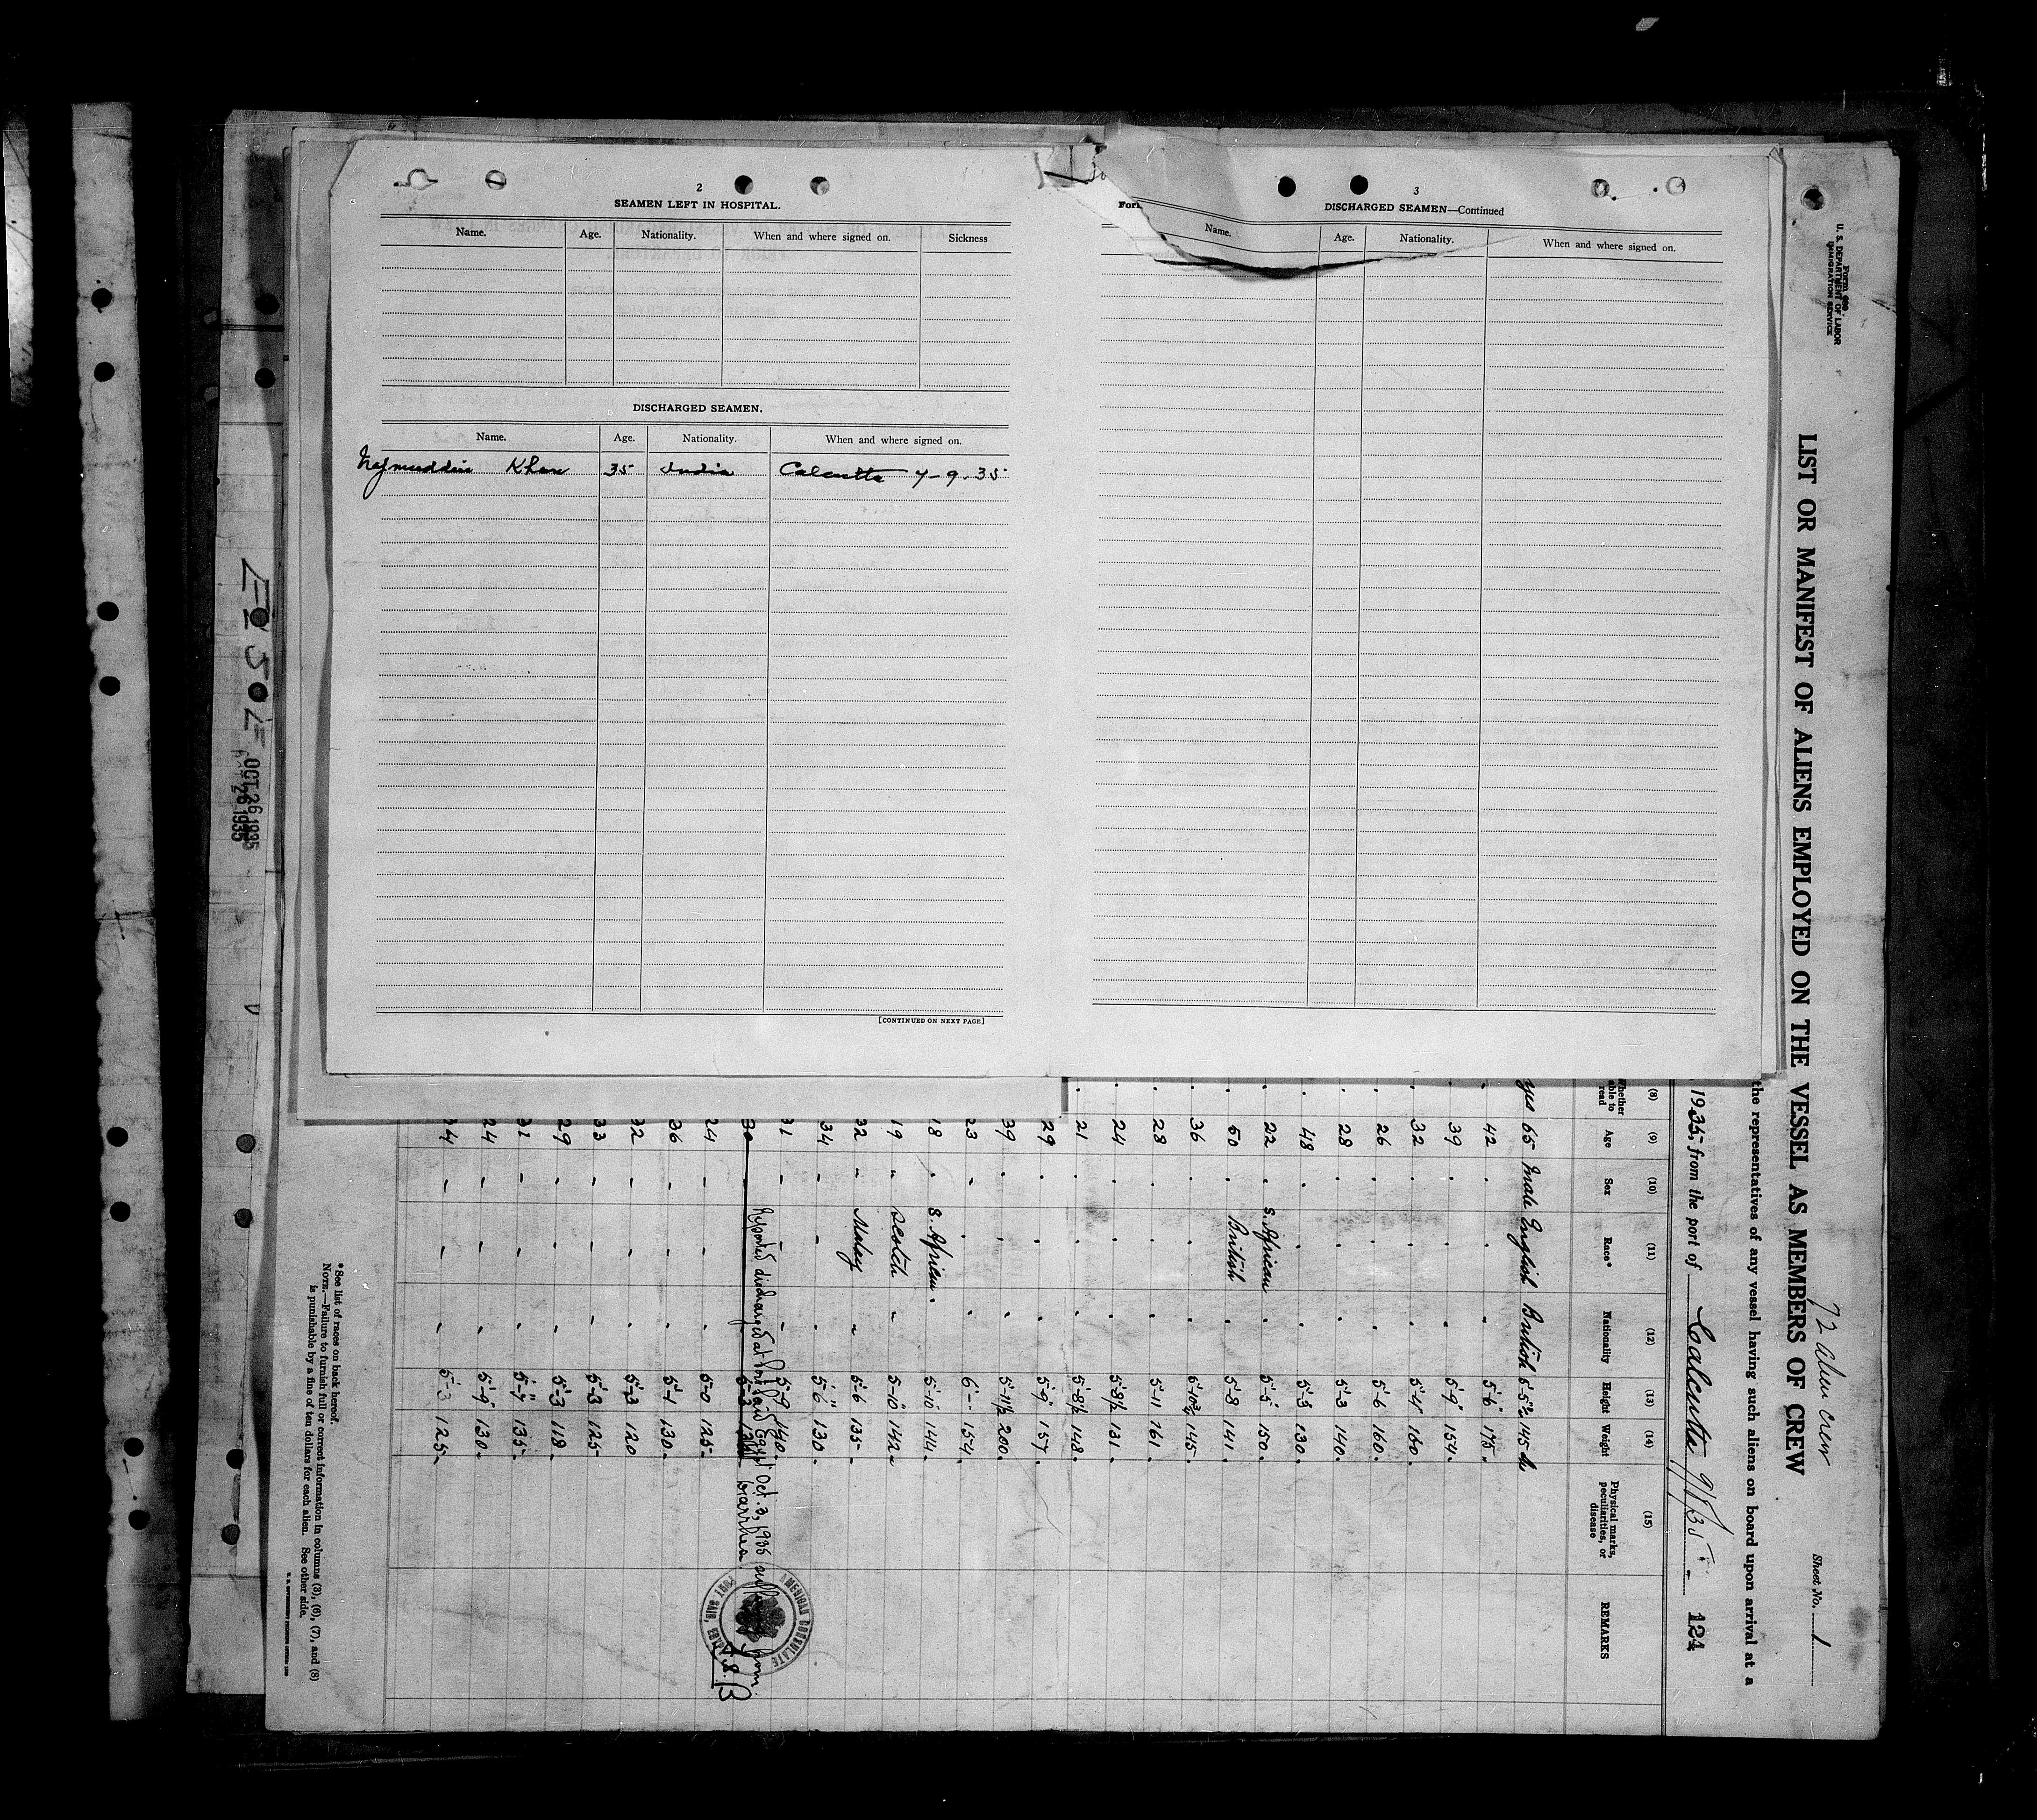 2
SEAMEN LEFT IN HOSPITAL.
Name. Age. Nationality. When and where signed on. Sickness
DISCHARGED SEAMEN.
Name. Age. Nationality. When and where signed on.
Najmuddin Khan 35 India Calcutta 7-9-35
[CONTINUED ON NEXT PAGE]
3
DISCHARGED SEAMEN—Continued
Name. Age. Nationality. When and where signed on.
Form 680
U. S. DEPARTMENT OF LABOR
IMMIGRATION SERVICE
72 alien crew
Sheet No. 1
LIST OR MANIFEST OF ALIENS EMPLOYED ON THE VESSEL AS MEMBERS OF CREW
the representatives of any vessel having such aliens on board upon arrival at a
1935, from the port of Calcutta 124
(8) (9) (10) (11) (12) (13) (14) (15)
Whether able to read Age Sex Race* Nationality Height Weight Physical marks, peculiarities, or disease REMARKS
yes 65 Male English British 145
42 5-6 175
39 5-9 154
32 5-4 160
26 5-6 160
28 5-3 140
48 5-3 130
22 S. African 5-5 150
50 British 5-8 141
36 5-10¾ 145
28 5-11 161
24 5-8½ 131
21 5-8½ 148
29 5-9 157
39 5-11½ 200
23 6- 154
18 S. African 5-10 144
19 Scotch 5-0 142
32 Malay 5-6 135
34 5-6 130
31 5-9 140
Reported discharged at Port Said Egypt Oct. 3, 1935 suffering from
30 5-3
AMERICAN CONSULATE
PORT SAID, EGYPT
24 5-0 125
36 5-1 130
32 5-3 120
33 5-3 125
29 5-3 118
31 5-7 135
24 5-9 130
24 5-3 125
* See list of races on back hereof.
NOTE.—Failure to furnish full or correct information in columns (3), (6), (7), and (8)
is punishable by a fine of ten dollars for each alien. See other side.
OCT 26 1935
26 1935